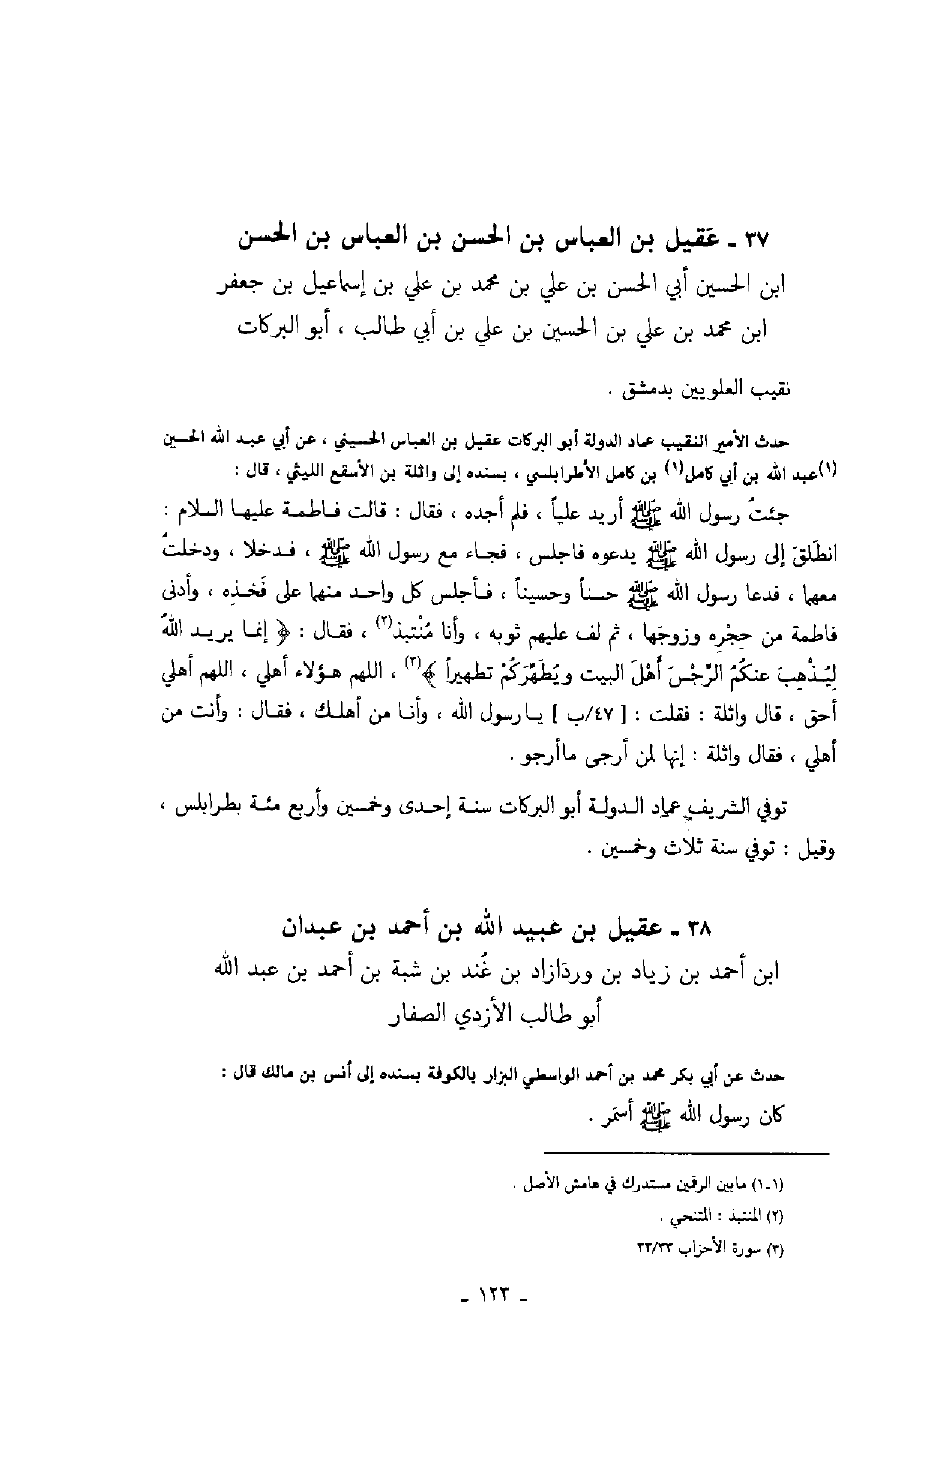 ٣٧ ـ عَقيل بن العباس بن الحسن بن العباس بن الحسن
ابن الحسين أبي الحسن بن علي بن محمد بن علي بن إسماعيل بن جعفر
ابن محمد بن علي بن الحسين بن علي بن أبي طالب ، أبو البركات
نقيب العلويين بدمشق .
حدث الأمير النقيب عماد الدولة أبو البركات عقيل بن العباس الحسيني ، عن أبي عبد الله الحسين
(١)عبد الله بن أبي كامل(١) بن كامل الأطرابلسي ، بسنده إلى واثلة بن الأسقع الليثي ، قال :
جئتُ رسول الله ﷺ أريد علياً ، فلم أجده ، فقال : قالت فاطمة عليها السلام :
انطلَقَ إلى رسول الله ﷺ يدعوه فاجلس ، فجاء مع رسول الله ﷺ ، فدخلا ، ودخلتُ
معهما ، فدعا رسول الله ﷺ حسناً وحسيناً ، فأجلس كل واحد منهما على فَخذِه ، وأدنى
فاطمة من حِجْره وزوجَها ، ثم لف عليهم ثوبه ، وأنا مُنْتبذ(٢) ، فقال : ﴿ إنما يريد اللهُ
لِيُذْهِبَ عنكُمُ الرِّجْسَ أهْلَ البيت ويُطَهِّرَكُمْ تطهيراً ﴾(٣) ، اللهم هؤلاء أهلي ، اللهم أهلي
أحق ، قال واثلة : فقلت : [ ٤٧/ب ] يا رسول الله ، وأنا من أهلك ، فقال : وأنت من
أهلي ، فقال واثلة : إنها لمن أرجى ماأرجو .
توفي الشريف عماد الدولة أبو البركات سنة إحدى وخمسين وأربع مئة بطرابلس ،
وقيل : توفي سنة ثلاث وخمسين .
٣٨ ـ عقيل بن عبيد الله بن أحمد بن عبدان
ابن أحمد بن زياد بن وردَازاد بن غُند بن شبة بن أحمد بن عبد الله
أبو طالب الأزدي الصفار
حدث عن أبي بكر محمد بن أحمد الواسطي البزار بالكوفة بسنده إلى أنس بن مالك قال :
كان رسول الله ﷺ أسمَر .
(١ـ١) مابين الرقمين مستدرك في هامش الأصل .
(٢) المنتبذ : المتنحي .
(٣) سورة الأحزاب ٣٣/٣٣
ـ ١٢٣ ـ